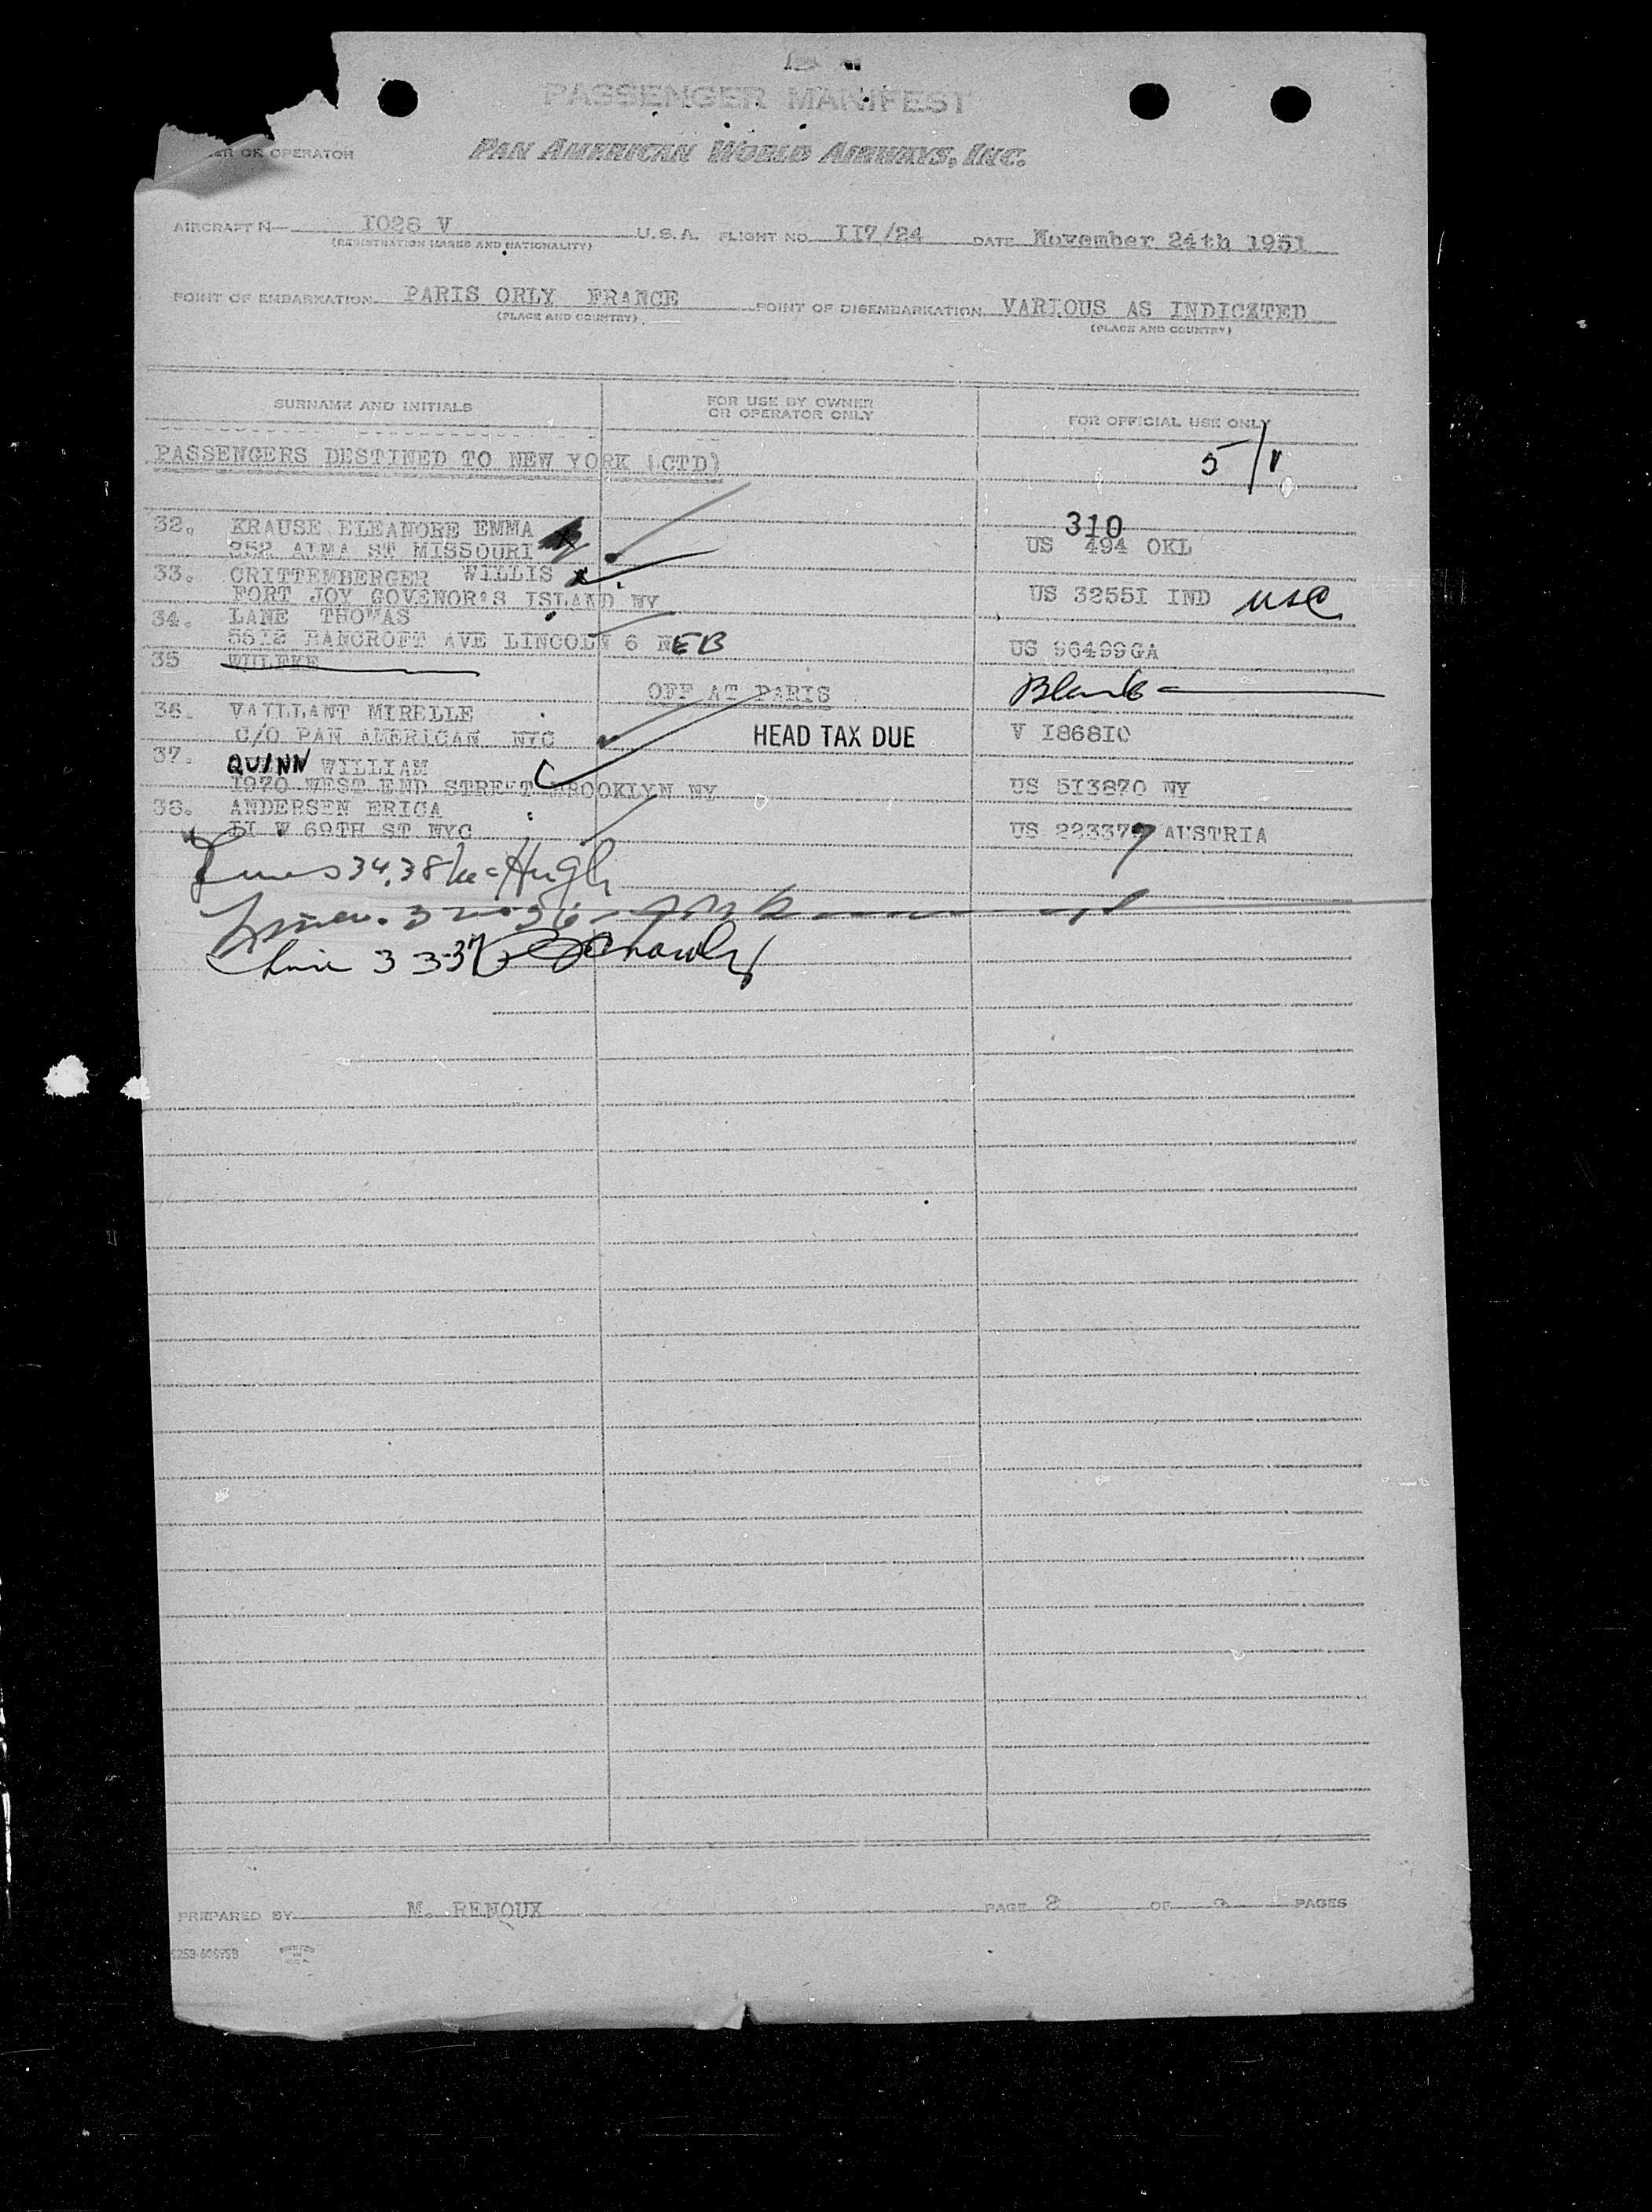 PASSENGER MANIFEST
OR OPERATOR
PAN AMERICAN WORLD AIRWAYS, INC.
AIRCRAFT N— I028 V U.S.A. FLIGHT NO. II7/24 DATE November 24th 1951
(REGISTRATION MARKS AND NATIONALITY)
POINT OF EMBARKATION PARIS ORLY FRANCE POINT OF DISEMBARKATION VARIOUS AS INDICATED
(PLACE AND COUNTRY) (PLACE AND COUNTRY)
SURNAME AND INITIALS FOR USE BY OWNER OR OPERATOR ONLY FOR OFFICIAL USE ONLY
PASSENGERS DESTINED TO NEW YORK (CTD) 5/1
310
32. KRAUSE ELEANORE EMMA
252 ALMA ST MISSOURI US 494 OKL
33. CRITTEMBERGER WILLIS
FORT JOY GOVENOR'S ISLAND NY US 3255I IND USC
34. LANE THOMAS
5612 BANCROFT AVE LINCOLN 6 NEB US 96499GA
35 WULEKE
OFF AT PARIS Blank
36. VAILLANT MIRELLE
C/O PAN AMERICAN NYC HEAD TAX DUE V I868I0
37. QUINN WILLIAM
1970 WEST END STREET BROOKLYN NY US 5I3870 NY
38. ANDERSEN ERICA
II W 69TH ST NYC US 223377 AUSTRIA
Lines 34,38 McHugh
Lines 32
Line 33-37
PREPARED BY M. RENOUX PAGE 2 OF PAGES